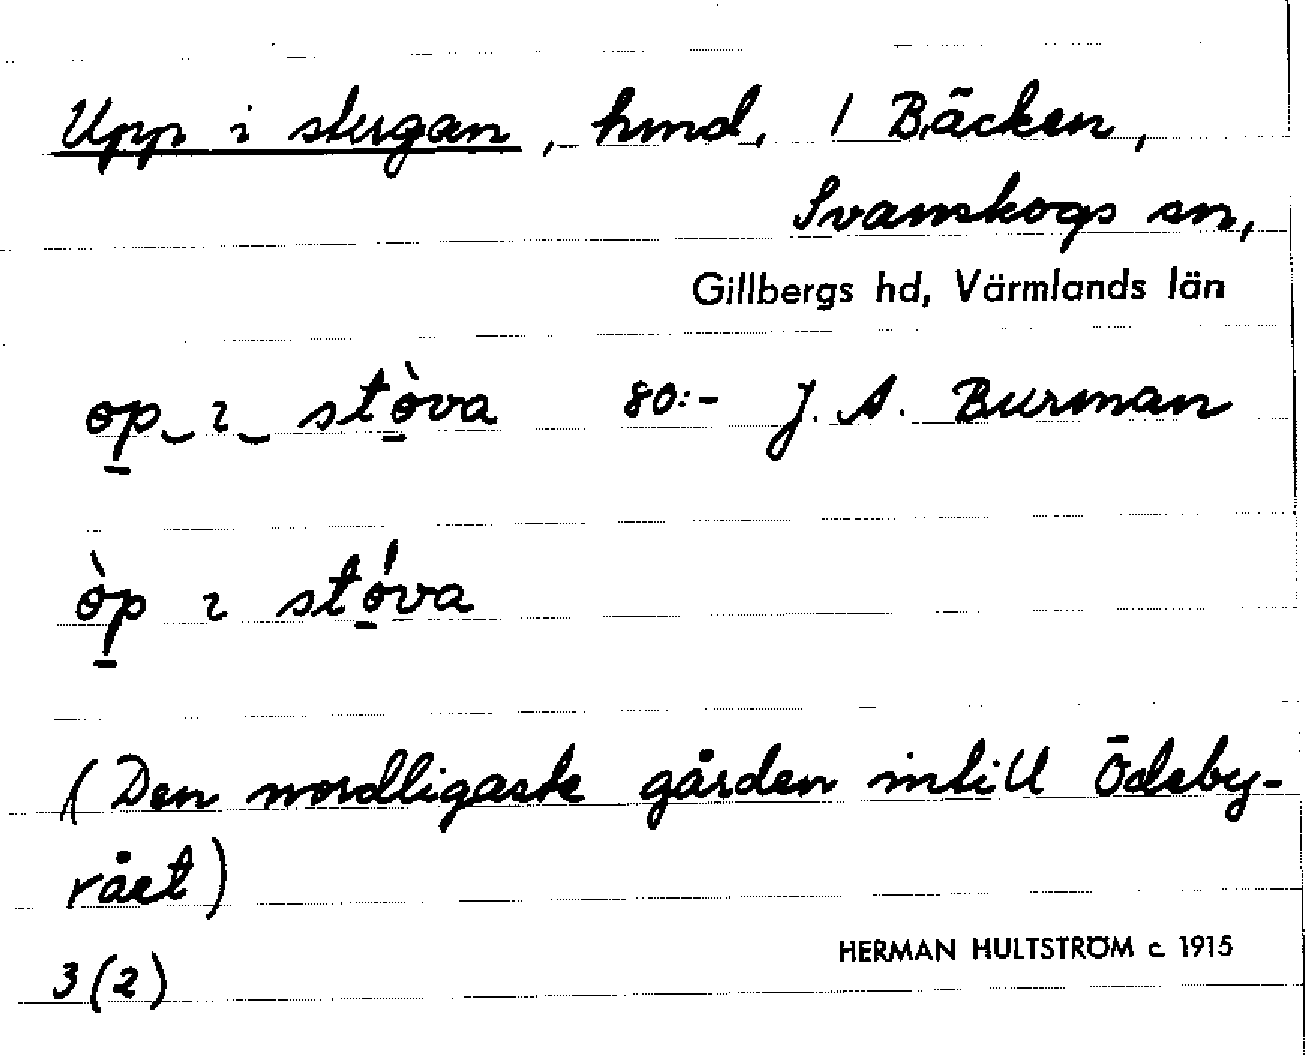 Upp i stugan, hmd, 1 Bäcken,
Svanskogs sn,
Gillbergs hd, Värmlands län
ɵp‿ı‿ stɵ̀va 80:- J. A. Burman
ɵ̀p ı stɵ́va
(Den nordligaste gården intill Ödeby-
rået)
HERMAN HULTSTRÖM c. 1915
3(2)